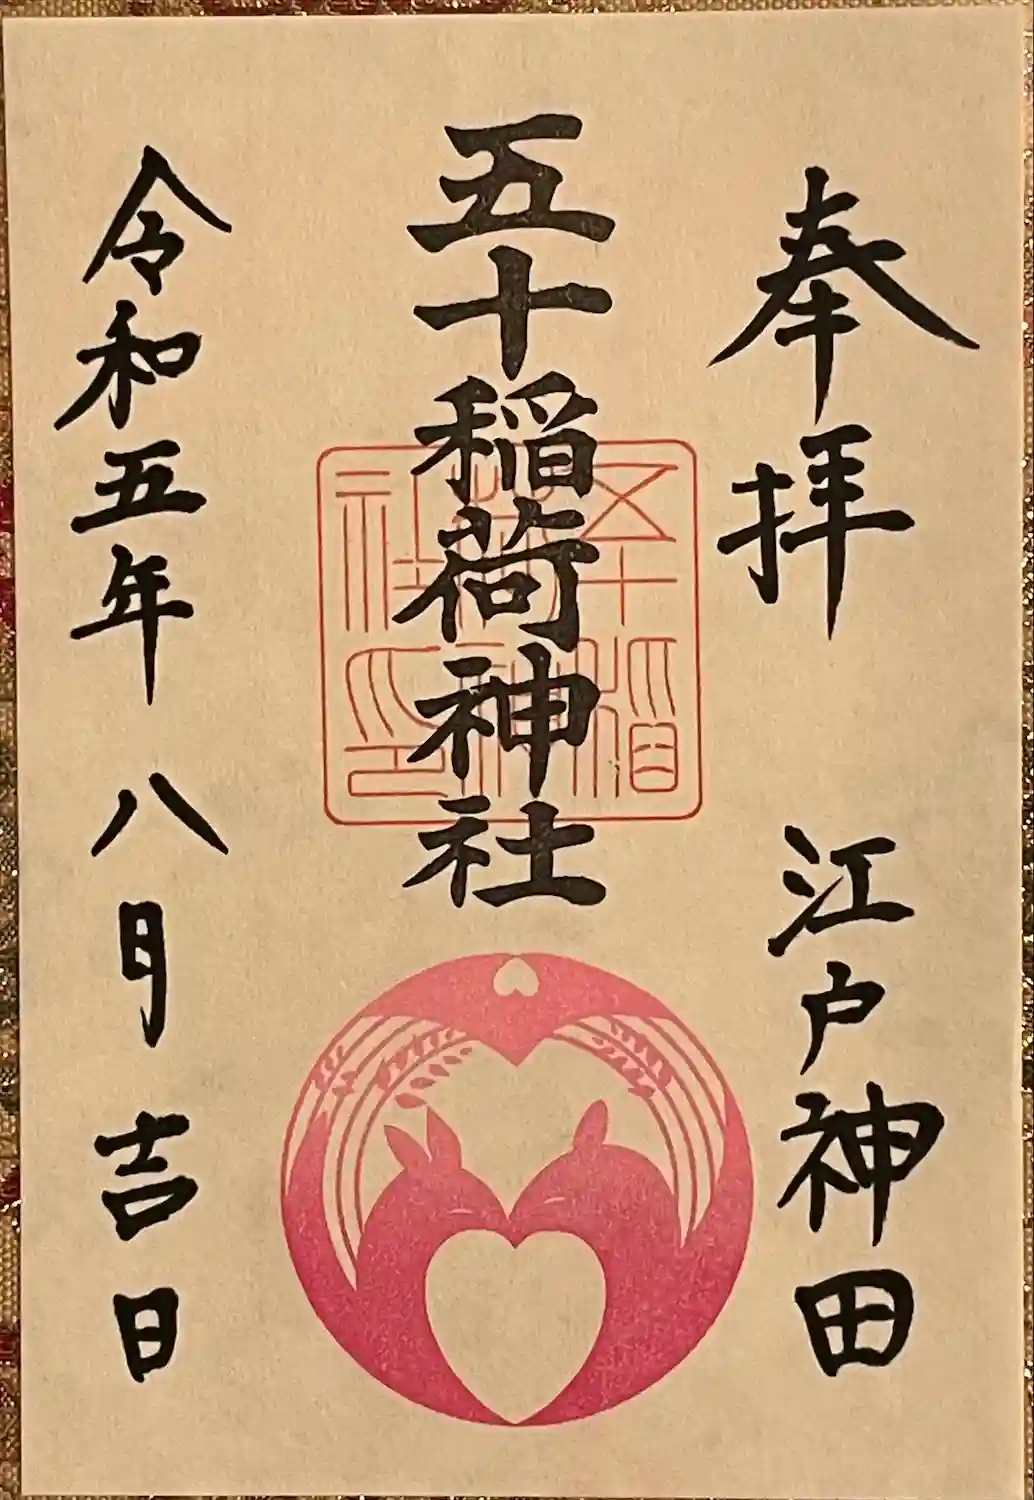 奉拝 江戸神田
五十稲荷神社
五十稲荷神社印
令和五年 八月吉日